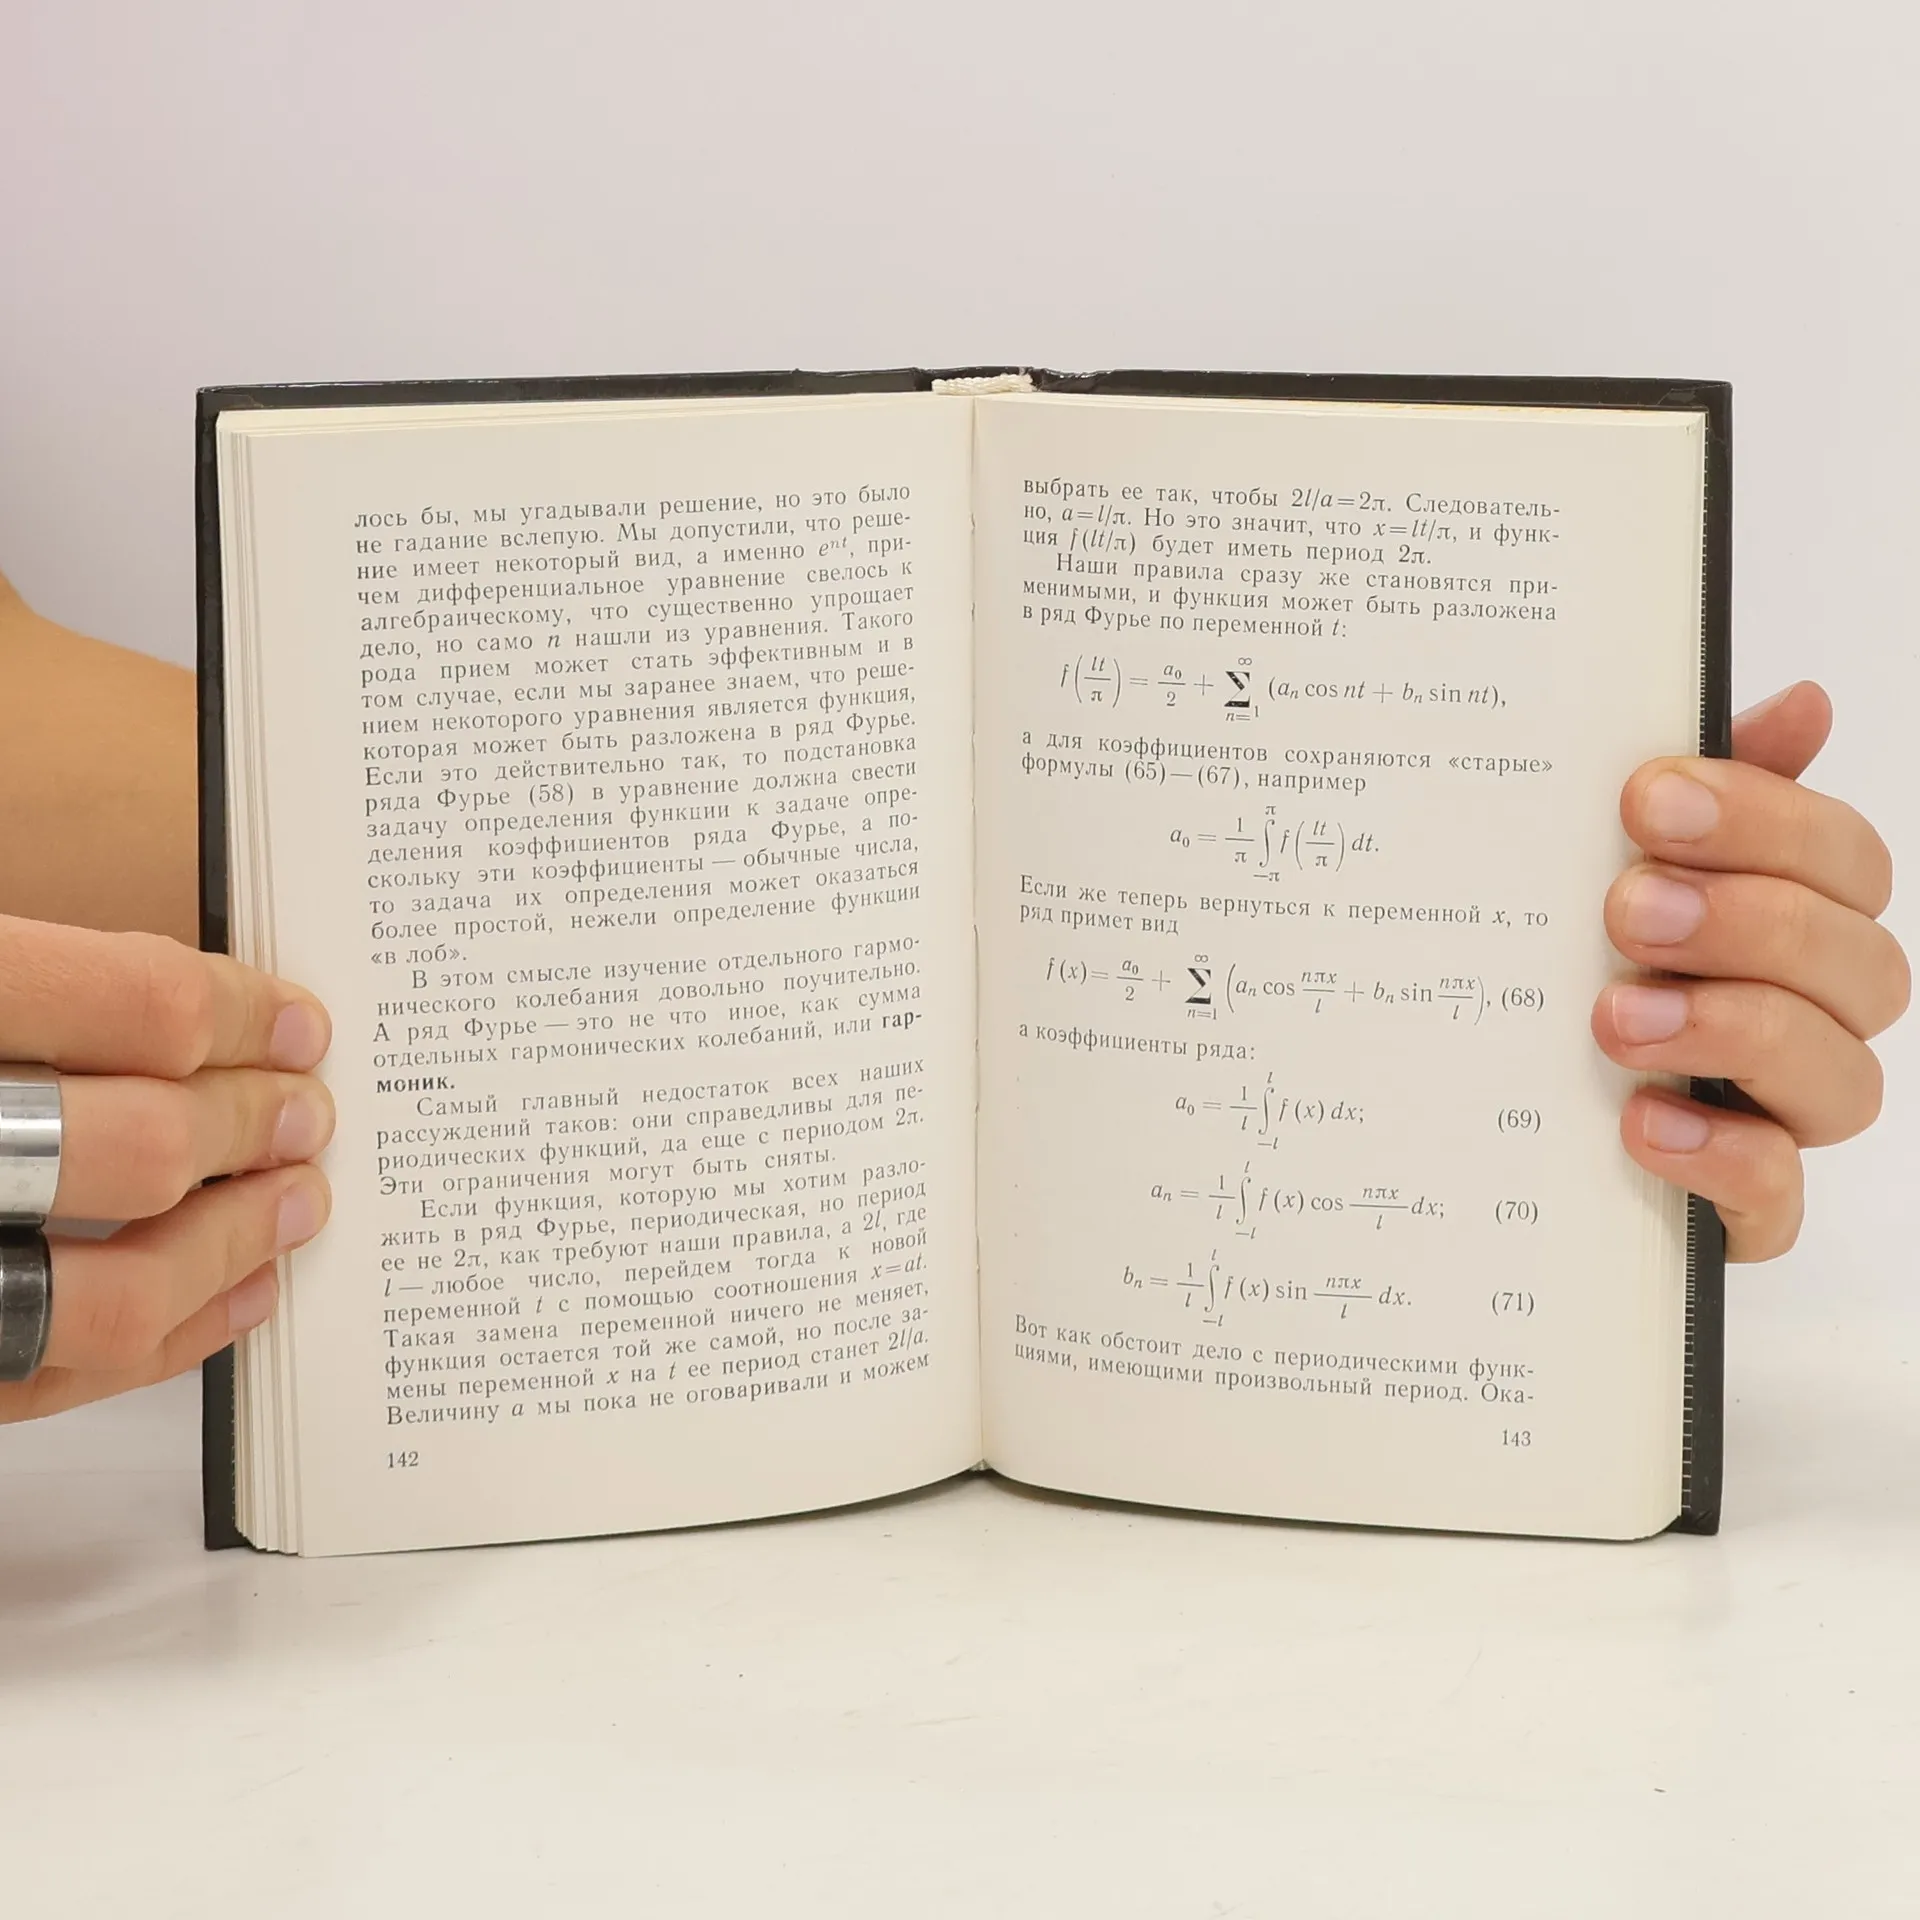 лось бы, мы угадывали решение, но это было
не гадание вслепую. Мы допустили, что реше-
ние имеет некоторый вид, а именно eⁿᵗ, при-
чем дифференциальное уравнение свелось к
алгебраическому, что существенно упрощает
дело, но само n нашли из уравнения. Такого
рода прием может стать эффективным и в
том случае, если мы заранее знаем, что реше-
нием некоторого уравнения является функция,
которая может быть разложена в ряд Фурье.
Если это действительно так, то подстановка
ряда Фурье (58) в уравнение должна свести
задачу определения функции к задаче опре-
деления коэффициентов ряда Фурье, а по-
скольку эти коэффициенты — обычные числа,
то задача их определения может оказаться
более простой, нежели определение функции
«в лоб».
В этом смысле изучение отдельного гармо-
нического колебания довольно поучительно.
А ряд Фурье — это не что иное, как сумма
отдельных гармонических колебаний, или гар-
моник.
Самый главный недостаток всех наших
рассуждений таков: они справедливы для пе-
риодических функций, да еще с периодом 2π.
Эти ограничения могут быть сняты.
Если функция, которую мы хотим разло-
жить в ряд Фурье, периодическая, но период
ее не 2π, как требуют наши правила, а 2l, где
l — любое число, перейдем тогда к новой
переменной t с помощью соотношения x=at.
Такая замена переменной ничего не меняет,
функция остается той же самой, но после за-
мены переменной x на t ее период станет 2l/a.
Величину a мы пока не оговаривали и можем
142
выбрать ее так, чтобы 2l/a=2π. Следователь-
но, a=l/π. Но это значит, что x=lt/π, и функ-
ция f(lt/π) будет иметь период 2π.
Наши правила сразу же становятся при-
менимыми, и функция может быть разложена
в ряд Фурье по переменной t:
f(lt/π) = a₀/2 + ∑_{n=1}^{∞} (aₙ cos nt + bₙ sin nt),
а для коэффициентов сохраняются «старые»
формулы (65)—(67), например
a₀ = 1/π ∫_{−π}^{π} f(lt/π) dt.
Если же теперь вернуться к переменной x, то
ряд примет вид
f(x) = a₀/2 + ∑_{n=1}^{∞} (aₙ cos nπx/l + bₙ sin nπx/l), (68)
а коэффициенты ряда:
a₀ = 1/l ∫_{−l}^{l} f(x) dx; (69)
aₙ = 1/l ∫_{−l}^{l} f(x) cos nπx/l dx; (70)
bₙ = 1/l ∫_{−l}^{l} f(x) sin nπx/l dx. (71)
Вот как обстоит дело с периодическими функ-
циями, имеющими произвольный период. Ока-
143